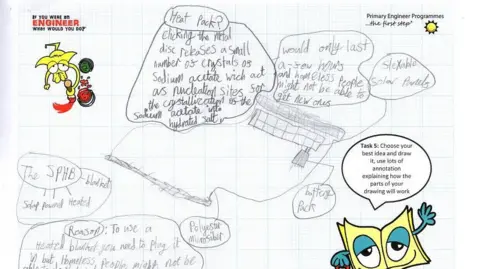 IF YOU WERE AN
ENGINEER
WHAT WOULD YOU DO?
Primary Engineer Programmes
...the first step
Heat Pack?
Clicking the metal
disc releases a small
number of crystals of
Sodium acetate wich act
as nucleation sites for
the crystallization of the
Sodium acetate into
hydrated salt
would only last
a few hours
and homeless people
might not be able to
get new ones
Flexable
Solar Panels
Task 5: Choose your
best idea and draw
it, use lots of
annotation
explaining how the
parts of your
drawing will work
The SPHB - blanket
Solar Powered Heated
battery
Pack
Reason: To use a
Heated blanket you need to plug it
but Homeless People might not be
Polyester